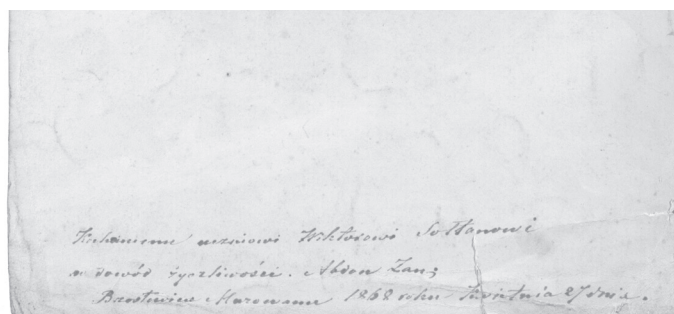 Kochanemu uczniowi Wiktorowi Sołtanowi
w dowód życzliwości. Abdon Zan;
Brzostowica Murowana 1868 roku Kwietnia 27 dnia.